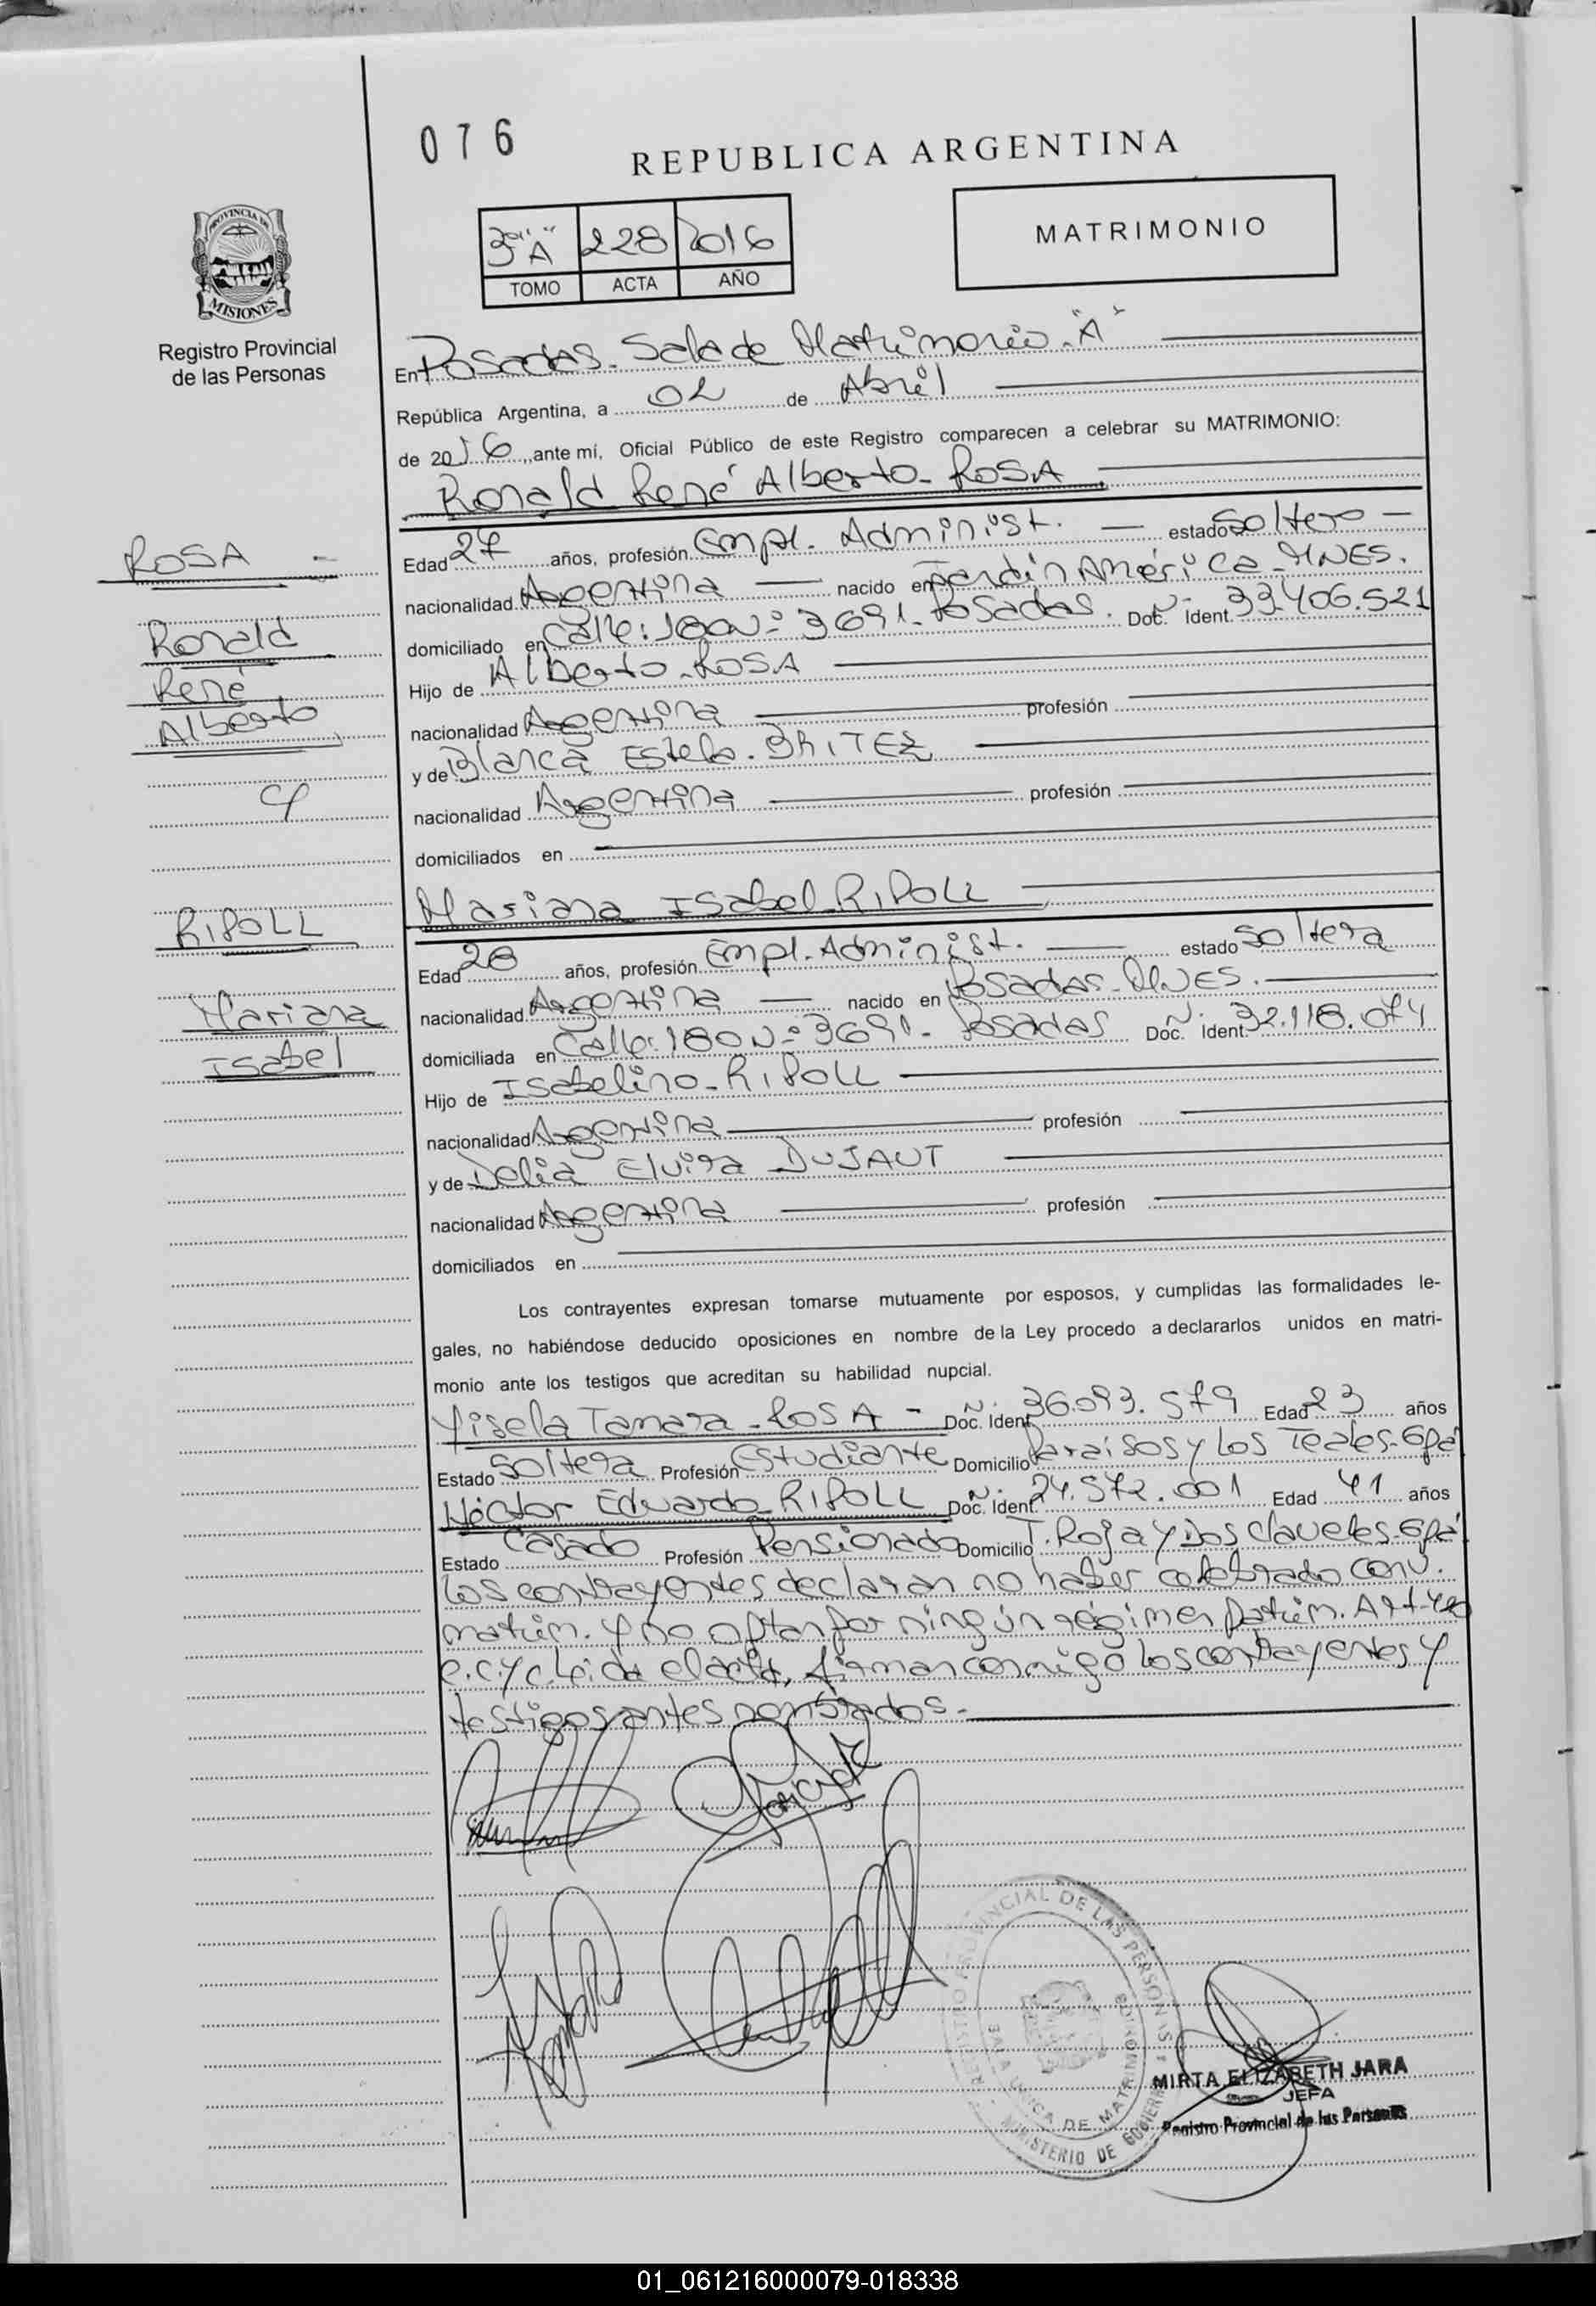 076
REPUBLICA ARGENTINA
PROVINCIA DE
MISIONES
Registro Provincial
de las Personas
3º "A" 228 2016
TOMO ACTA AÑO
MATRIMONIO
En Posadas - Sala de Matrimonio - "A"
República Argentina, a 02 de Abril
de 2016, ante mí, Oficial Público de este Registro comparecen a celebrar su MATRIMONIO:
Ronald René Alberto - ROSA
ROSA
Ronald
René
Alberto
y
RIPOLL
Mariana
Isabel
Edad 27 años, profesión Empl. Administ. estado Soltero
nacionalidad Argentina nacido en Jardín América - MNES.
domiciliado en Calle: 180 Nº 3691 - Posadas. Doc. Ident. 33.406.521
Hijo de Alberto - ROSA
nacionalidad Argentina profesión
y de Blanca Estela - BRITEZ
nacionalidad Argentina profesión
domiciliados en
Mariana Isabel - RIPOLL
Edad 28 años, profesión Empl. Administ. estado Soltera
nacionalidad Argentina nacido en Posadas - MNES.
domiciliada en Calle: 180 Nº 3691 - Posadas Doc. Ident. 32.118.074
Hijo de Isabelino - RIPOLL
nacionalidad Argentina profesión
y de Delia Elvira DUJAUT
nacionalidad Argentina profesión
domiciliados en
Los contrayentes expresan tomarse mutuamente por esposos, y cumplidas las formalidades le-
gales, no habiéndose deducido oposiciones en nombre de la Ley procedo a declararlos unidos en matri-
monio ante los testigos que acreditan su habilidad nupcial.
Yisela Tamara - ROSA - Doc. Ident. 36.093.579 Edad 23 años
Estado Soltera Profesión Estudiante Domicilio Paraísos y Los Teales - Gpá
Héctor Eduardo - RIPOLL Doc. Ident. 24.572.001 Edad 41 años
Estado Casado Profesión Pensionado Domicilio T. Roja y Dos Claveles - Gpá
Los contrayentes declaran no haber celebrado conv.
matrim. y no optan por ningún régimen patrim. Art
C.C. y C. Leida el acta, firman conmigo los contrayentes y
testigos antes nombrados.-
REGISTRO PROVINCIAL DE LAS PERSONAS
MINISTERIO DE GOBIERNO
SALA UNICA DE MATRIMONIOS
MIRTA ELIZABETH JARA
JEFA
Registro Provincial de las Personas
01_061216000079-018338